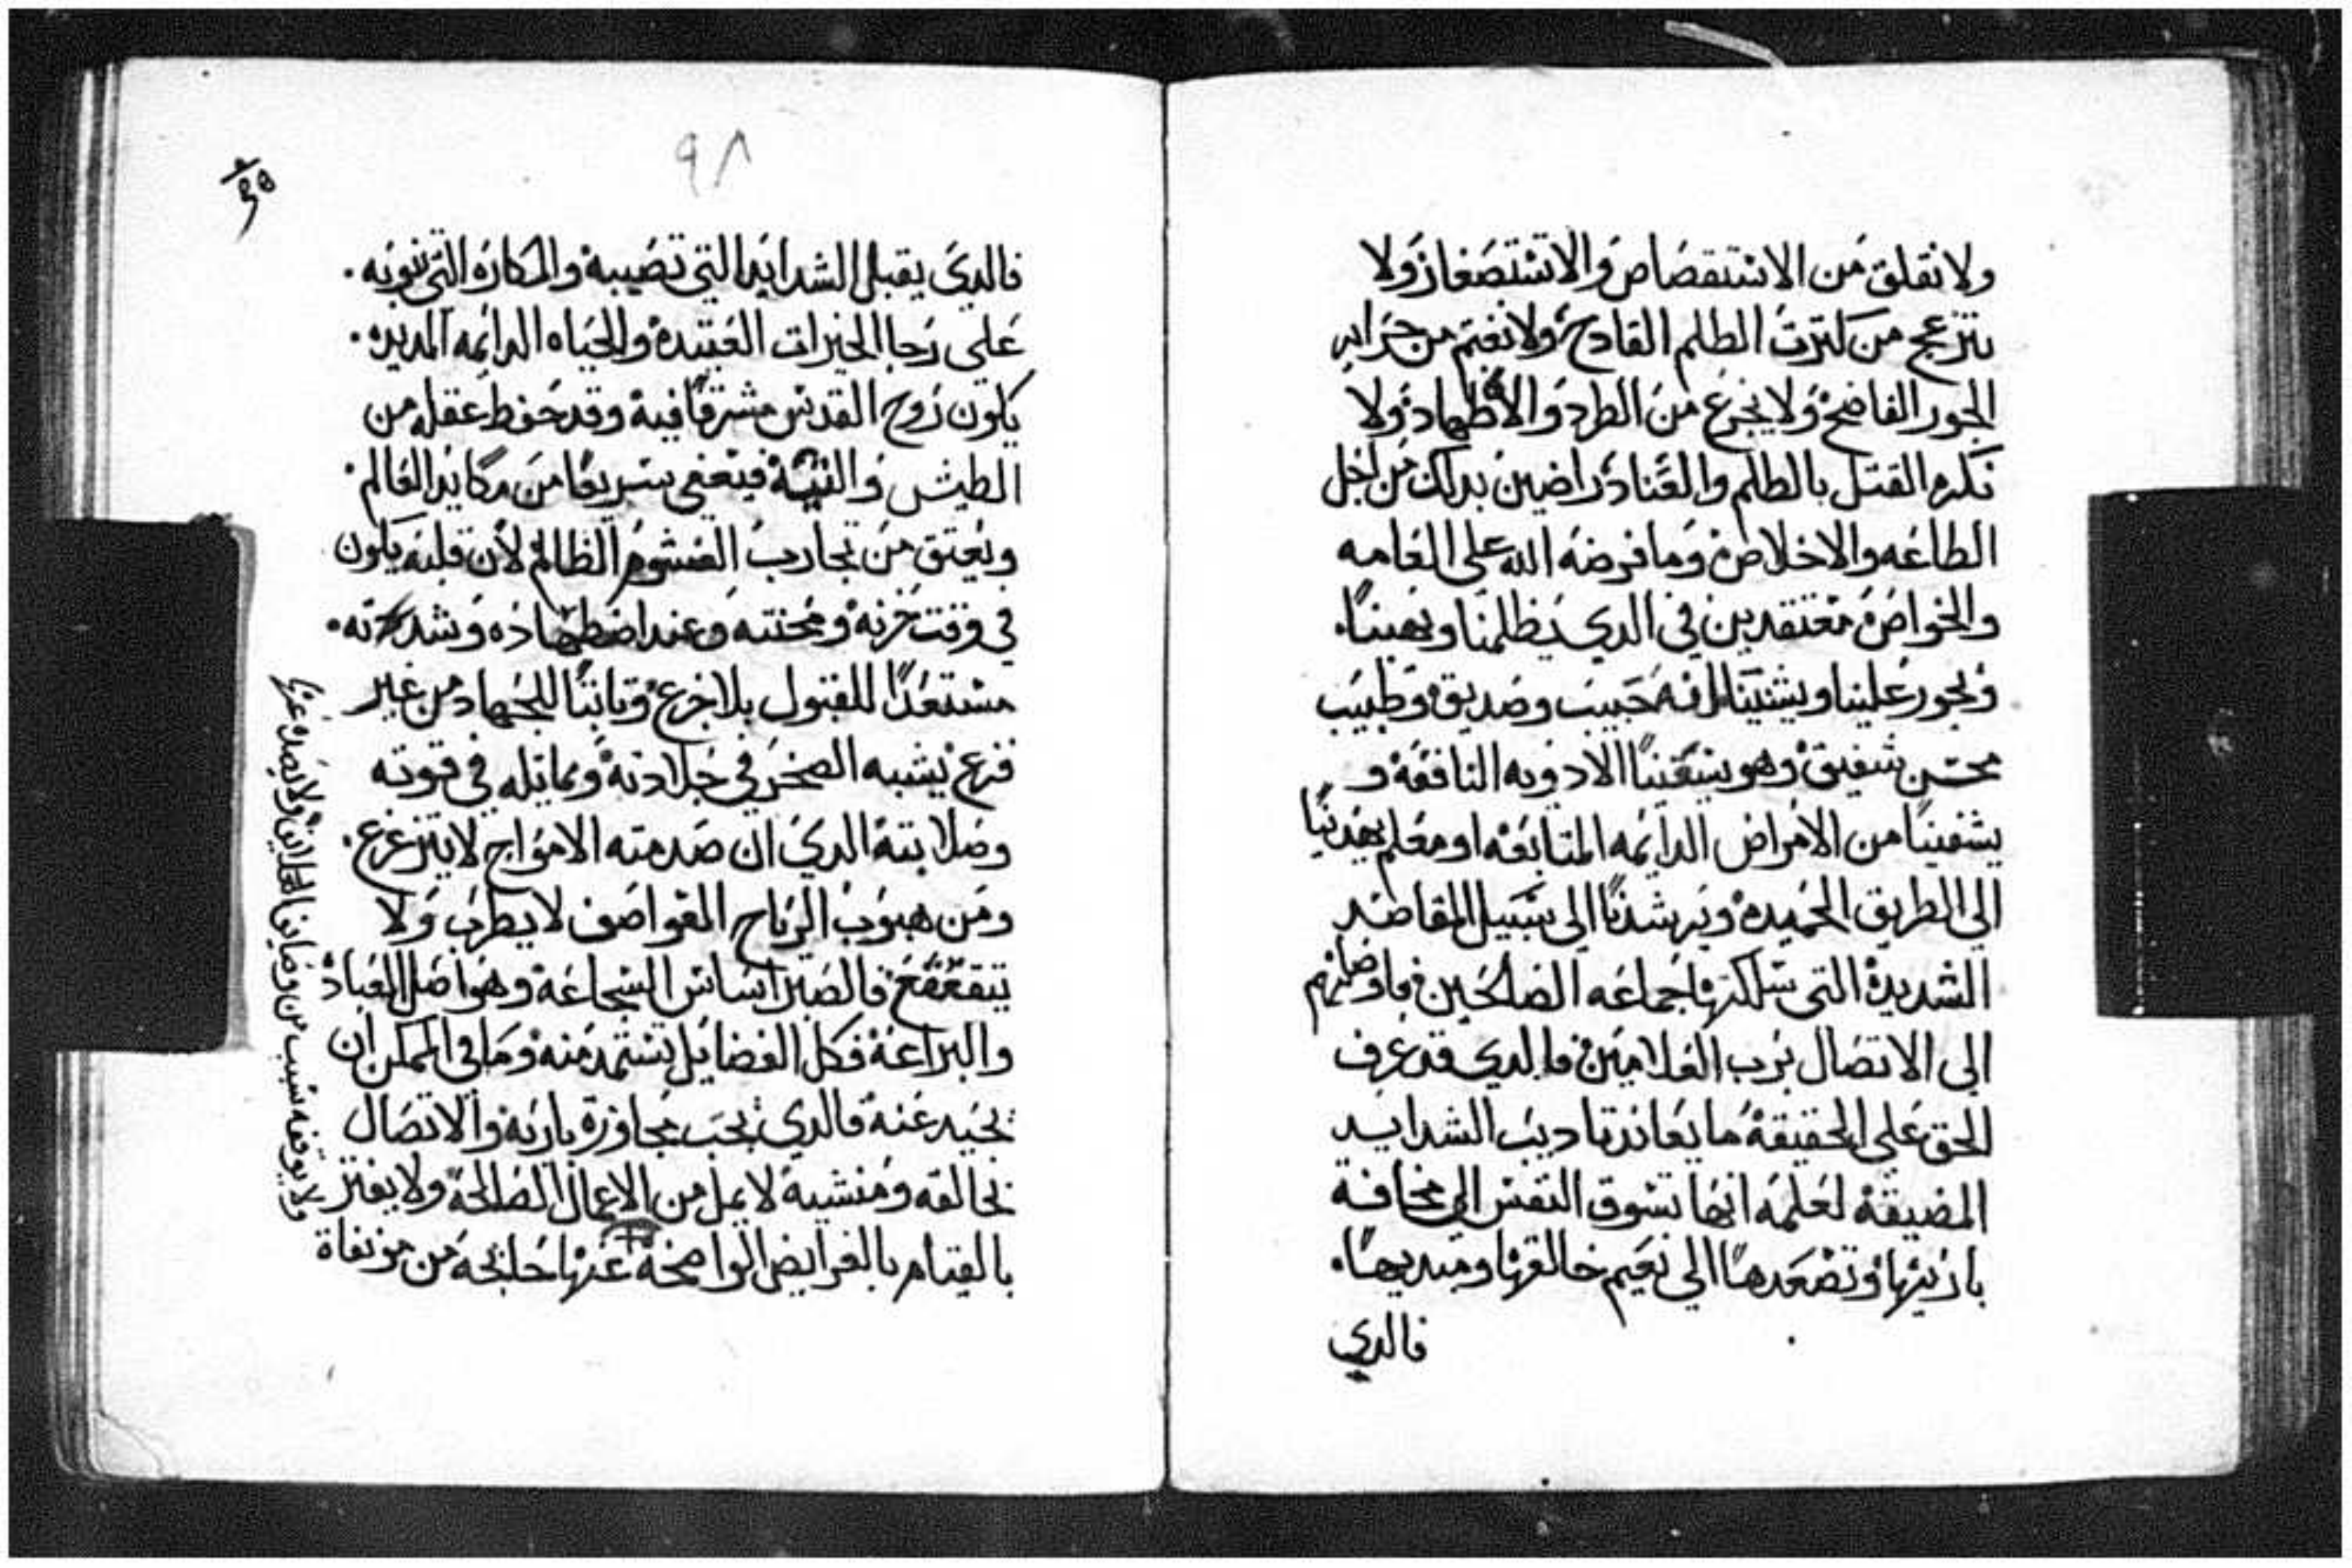 ولا نقلق من الاستقصاص والاستصغار ولا
ننزعج من كترت الطلم الفادح ولا نغتم من جراير
الجور الفاضح ولا نجزع من الطرد والاطهاد ولا
نكره القتل بالطلم والعناد راضين بدلك من اجل
الطاعه والاخلاص وما فرضه الله على العامه
والخواص معتقدين في الدي يظلمنا ويهيننا
ويجور علينا ويشنينا انه حبيب وصديق وطبيب
محسن شفيق وهو يسقينا الادويه النافعه و
يشفينا من الامراض الدايمه المتابعه او معلم يهدينا
الى الطريق الحميده ويرشدنا الى سبيل المقاصد
الشديدة التى سلكتها جماعه الصالحين فاوصلتهم
الى الاتصال برب العلامين فالدي قد عرف
الحق على الحقيقة ما يعاند تاديب الشدايد
المضيقة لعلمه انها تسوق النفس الى مخافة
باريها وتصعدها الى نعيم خالقها ومبديها
فالدي
٩٨
فالدي يقبل الشدايد التي تصيبه والمكاره التي تنوبه
على رجا الخيرات العتيدة والحياه الدايمه المديده
يكون روح القدس مشرقا فيه وقد حفط عقله من
الطيش والتيه فيعفى سريعا من مكايد العالم
ويعتق من تجارب الغشوم الظالم لان قلبه يكون
في وقت حزنه ومحنته وعند اضطهاده وشدته
مستعدا للقبول بلا جزع وتابتا للجهاد من غير
فزع يشبه الصخر في جلادته ويماتله في قوته
وصلابته الدي ان صدمته الامواج لا يتزعزع
ومن هبوب الرياح العواصف لا يطرب ولا
يتقعقع فالصبر اساس الشجاعة وهو اصل العباد
والبراعة فكل الفضايل تستمد منه وما في الممكن ان
تحيد عنه فالدي يحب مجاورة باريه والاتصال
بخالقه ومنشيه لا يمل من الاعمال الصالحة ولا يفتر
بالقيام بالفرايض الواضحة عنها خليجه من مونفاة
ولا يوقفه سبب من وصايا الخلان ولا يصده عنها